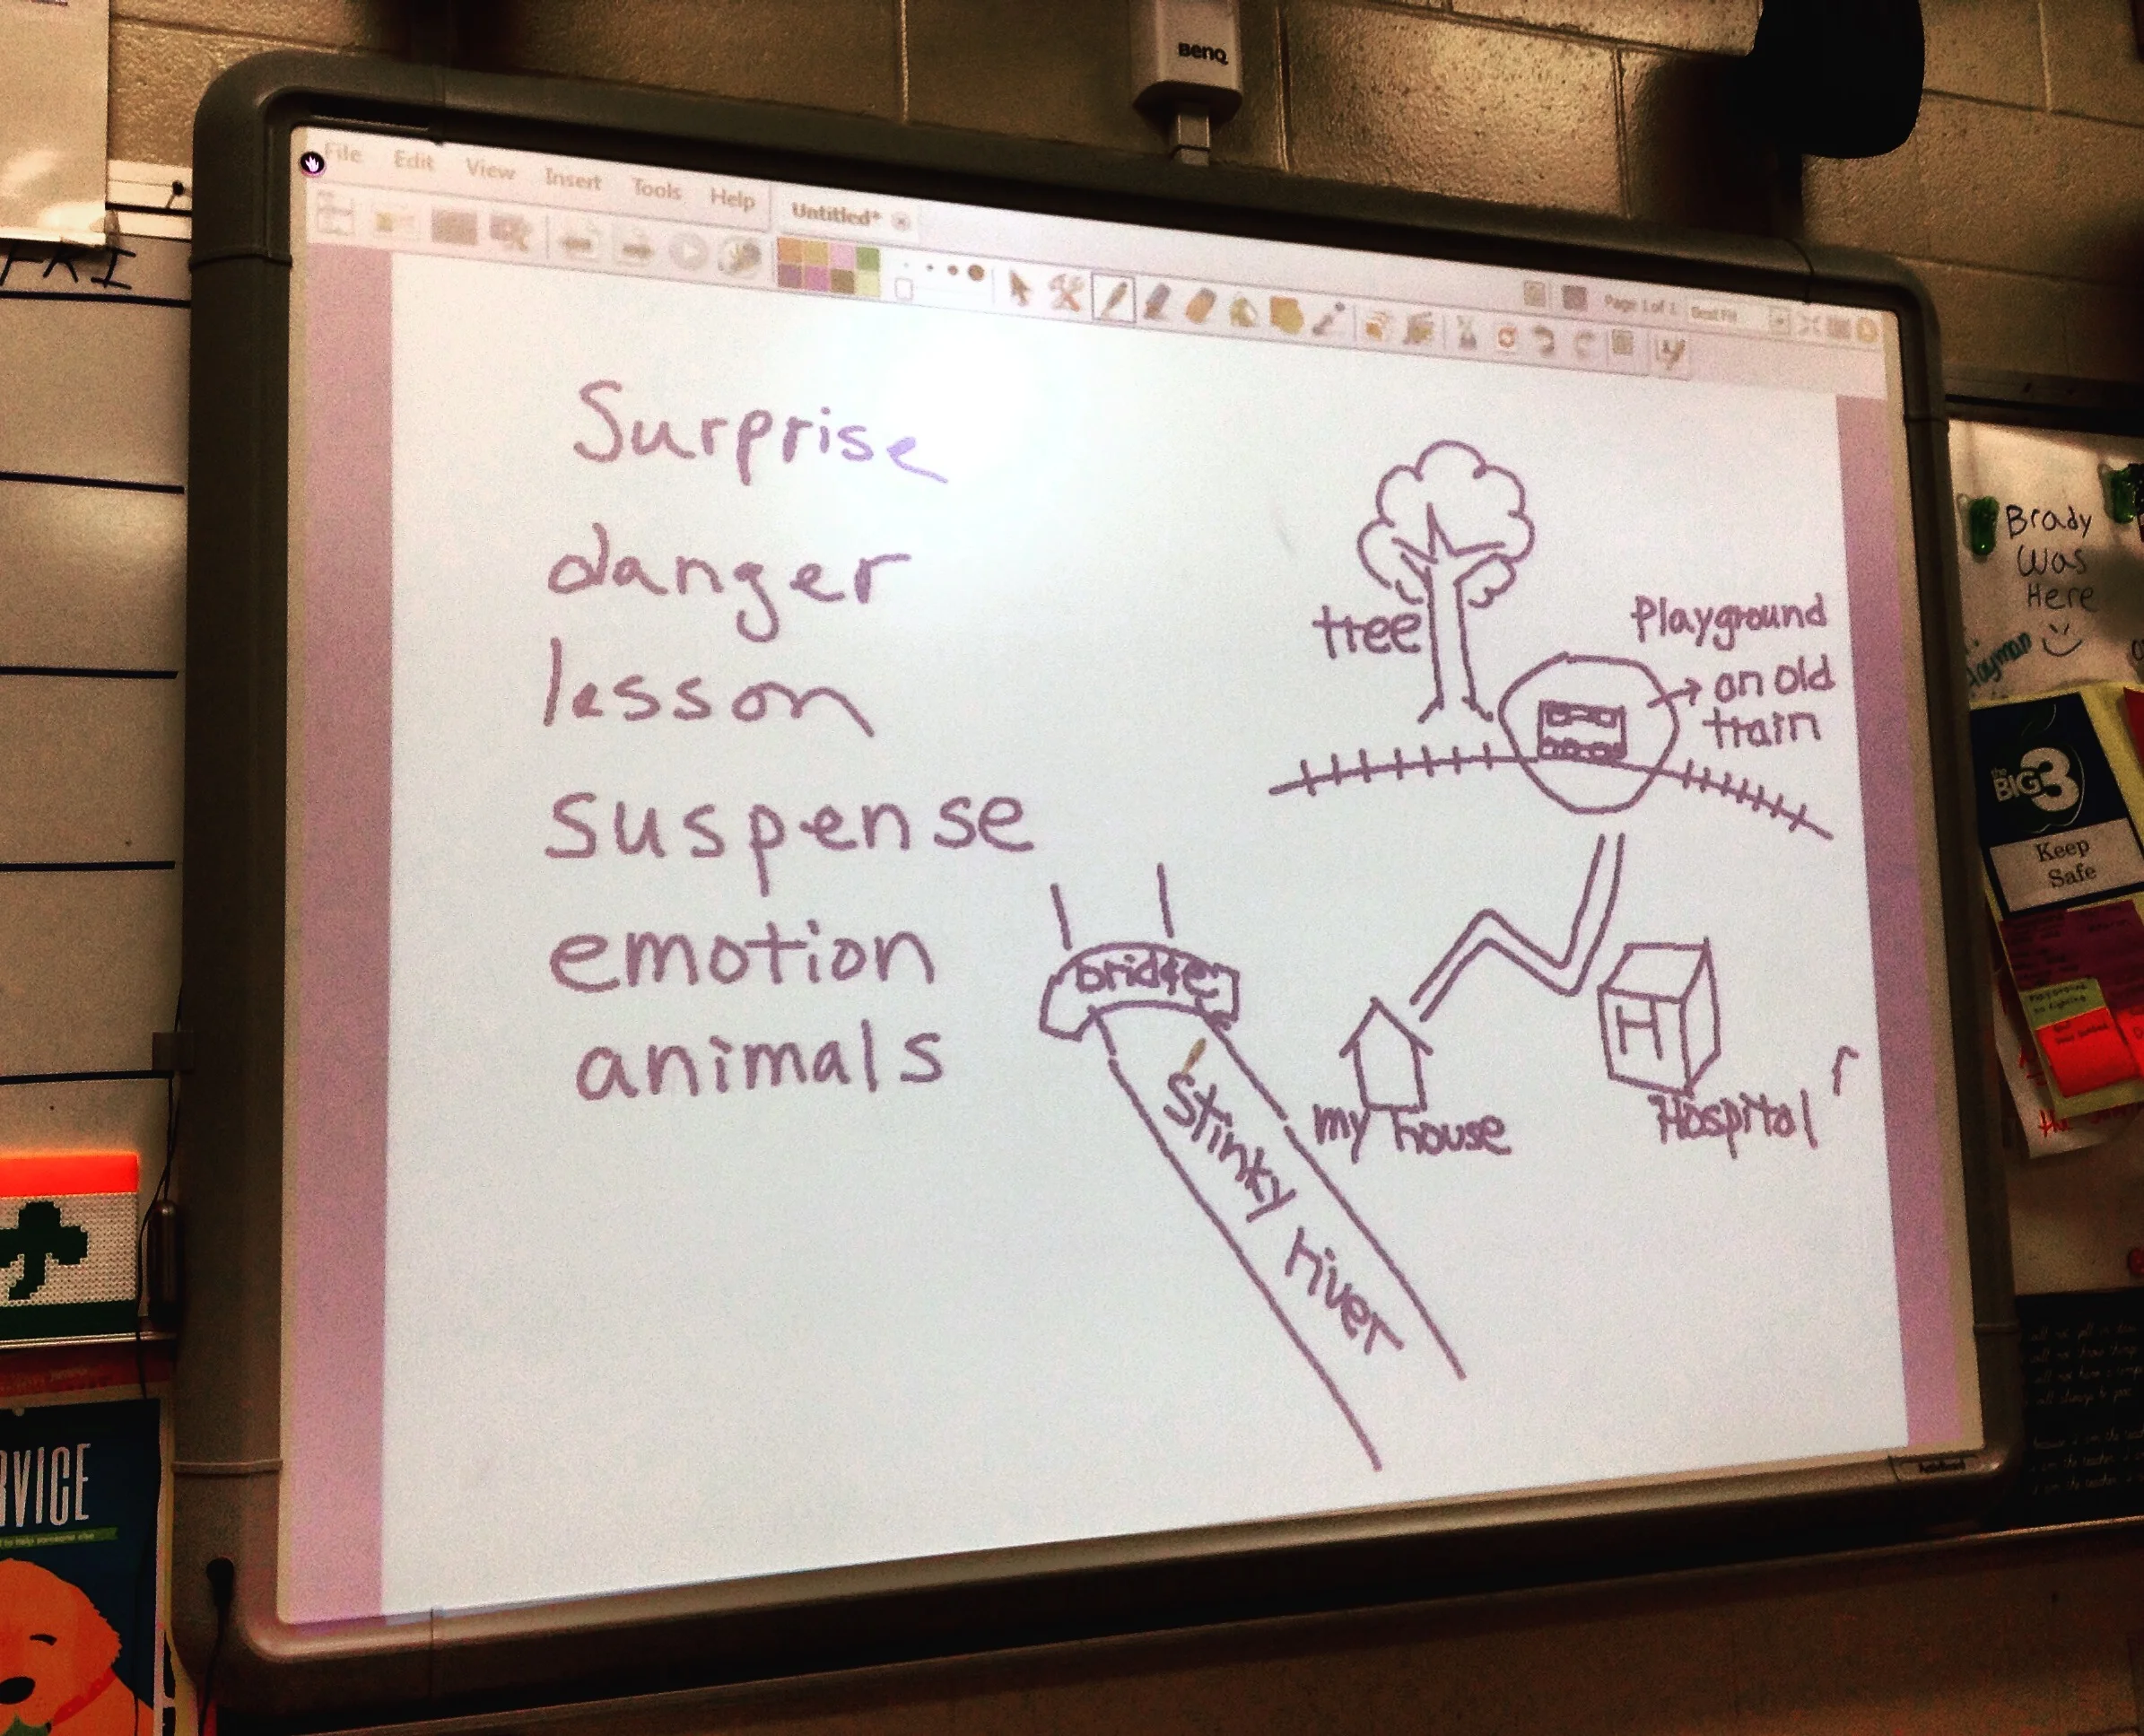 BenQ
File Edit View Insert Tools Help
Untitled*
Page 1 of 1
Best Fit
Surprise
danger
lesson
suspense
emotion
animals
tree
Playground
on old
train
bridge
Stinky river
my house
H
Hospital
r
Brady
Was
Here
the
BIG3
Keep
Safe
the
RVICE